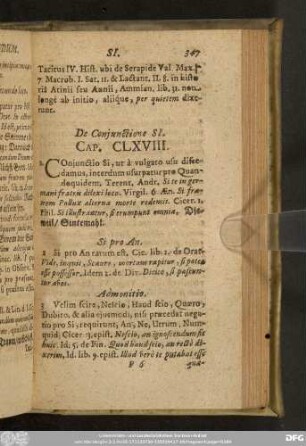 SI. 347
Tacitus IV. Hist. ubi de Serapide Val. Max. I.
7. Macrob. I. Sat. 11. & Lactant. II. 8. in histo
riâ Atinii seu Annii, Ammian. lib. 31. non
longè ab initio, aliique, per quietem dixe-
runt.
De Conjunctione SI.
CAP. CLXVIII.
1. COnjunctio Si, ut à vulgato usu disce-
damus, interdum usurpatur pro Quan-
doquidem, Terent. Andr. Si te in ger-
mani fratris dilexi loco. Virgil. 6. Æn. Si fra-
trem Pollux alterna morte redemit. Cicer. 1.
Phil. Si illustrantur, si erumpunt omnia,
Si pro An.
2. Si pro An rarum est, Cic. lib. 2. de Orat.
Vide, inquit, Scaure, mortuus rapitur, si potes
esse possessor. Idem 2. de Div. Dicite, si pascun-
tur aves.
Admonitio.
3. Velim scire, Nescio, Haud scio, Quæro,
Dubito, & alia ejusmodi, nisi præcedat nega-
tio pro Si, requirunt, An, Ne, Utrum, Num
quid, Cicer. 9. epist. Nescio, an ignoscendum sit
huic. Id. 5. de Fin. Quod haud scio, an rectè di-
xerim, Id. lib. 9. epist. Illud verò te putabat esse
P 6